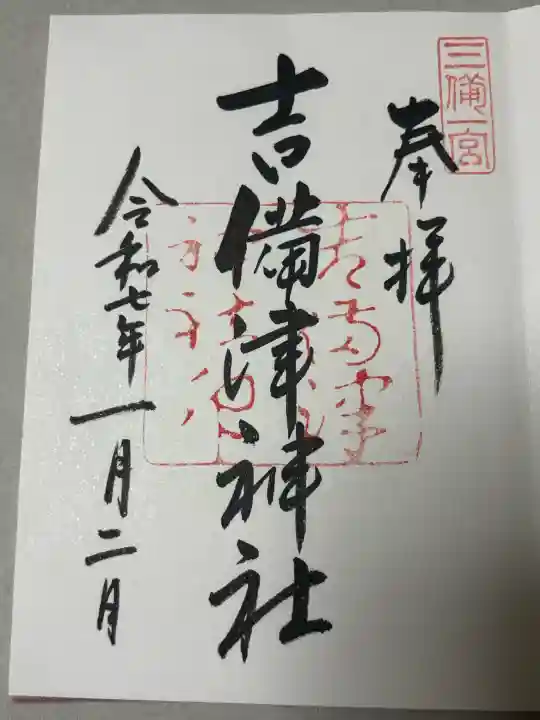 三備一宮
奉拝
吉備津神社
令和七年一月二日